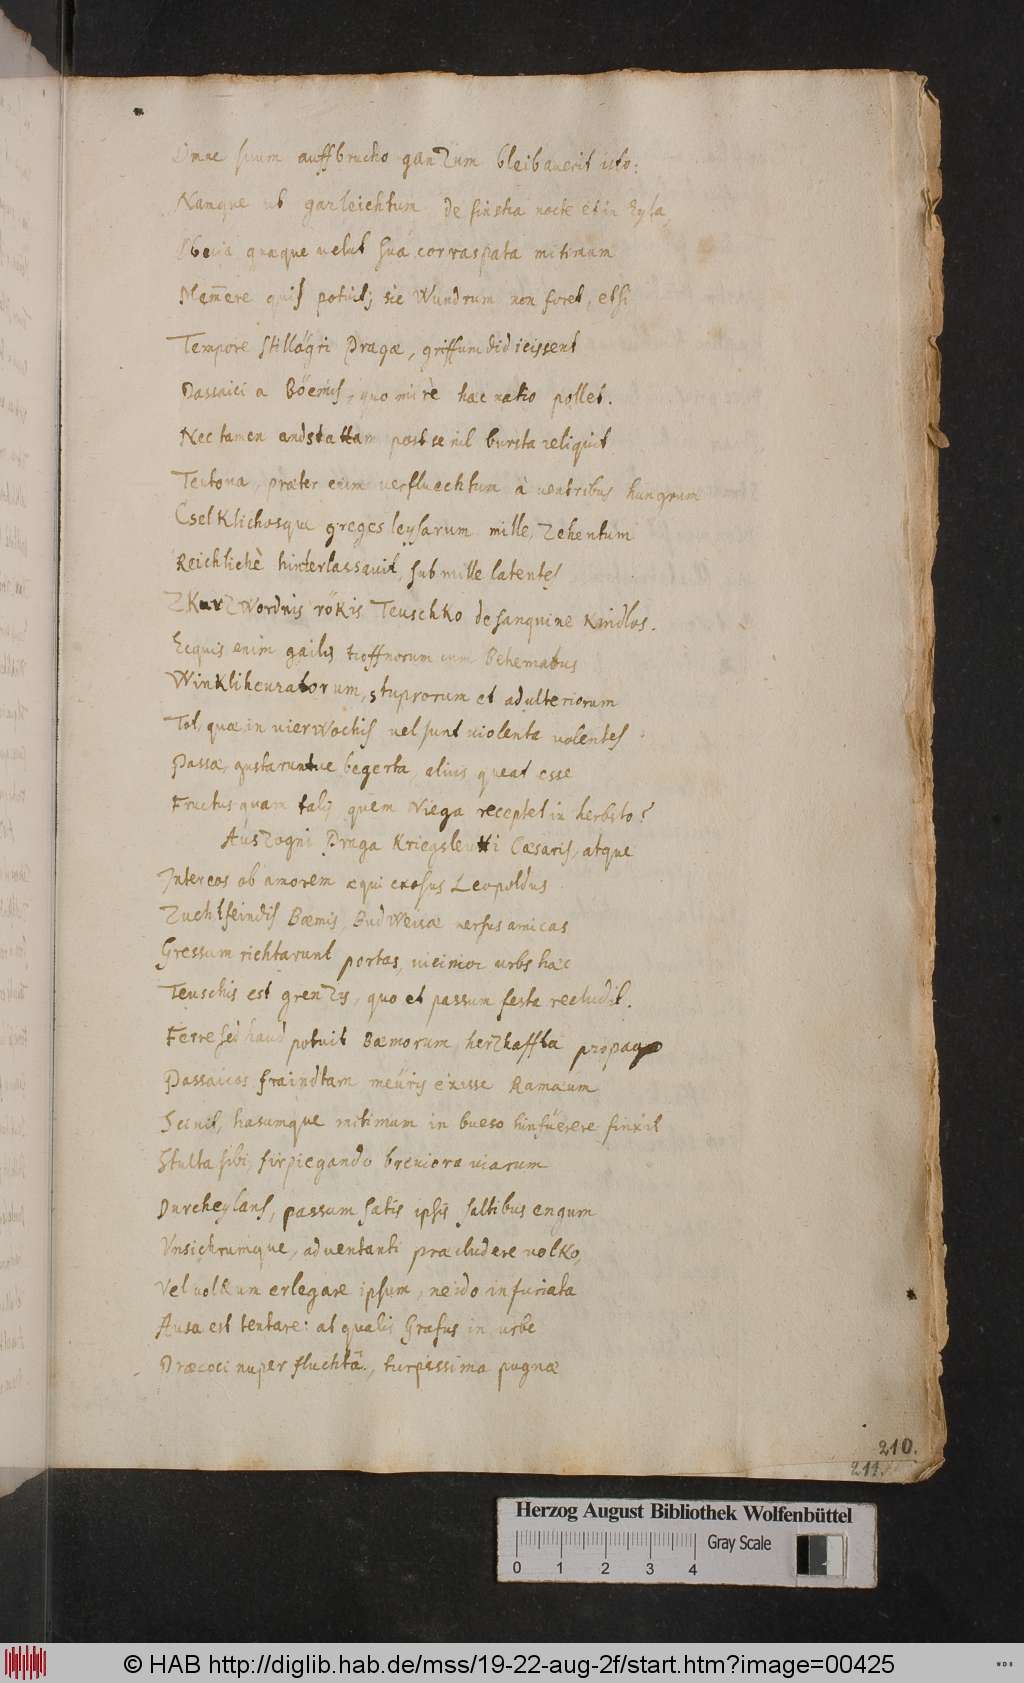 Omne suum auffbrucho ganzum bleibauerit isto:
Namque ut garleichtum de finstra nocte et in Eyla,
quaque uelut sua corraspata mitinum
Nem̃ere quis potuit; sic Wundrum non foret, etsi
Tempore stillägri Pragæ, griffum didicissent
Passaici a Böemis, quo mirè hæc natio pollet.
Nec tamen andstattam post se nil bursta reliquit
Teutona, præter eum uerfluechtum à uentribus hungrum
Eselklichosque greges leysarum mille, Zehentum
Reichlichè hinterlassauit, sub mille latentes
Zkurzwordnis rökis Teuschko de sanquine Kindlos.
Ecquis enim gailis treffnorum cum Behemabus
Winkliheuratorum, stuprorum et adulteriorum
Tot, quæ in uierwochis uel sunt uiolenta uolentes
Passæ, gustaruntue begerta, alius queat esse
Fructus quam talis, quem Niega receptet in herbsto?
Auszogni Praga Kriegsleutti Cæsaris, atque
Inter eos ob amorem æqui exosus Leopoldus
Zuchtfeindis Bæmis, Budweisæ uersus amicas
Gressum richtarunt portas, uicinior urbs hæc
Teuschis est grenzis, quo et passum festa recludit.
Ferre sed haud potuit Bæmorum herzhaffta propago
Passaicos fraindtam meüris exisse Ramaum
Sci nil, hasumque mitimum in bueso hinfüerere finxit
Stulta sibi, firpiegando breuiora uiarum
Durcheylans, passum satis ipsis saltibus engum
Vnsichrumque, aduentanti præcludere uolko,
Vel uolkum erlegare ipsum, neido infuriata
Ausa est tentare: at qualis Grafus in urbe
Præcoci nuper fluchtâ, turpissima pugnæ
210.
211.
Herzog August Bibliothek Wolfenbüttel
Gray Scale
0 1 2 3 4
© HAB http://diglib.hab.de/mss/19-22-aug-2f/start.htm?image=00425